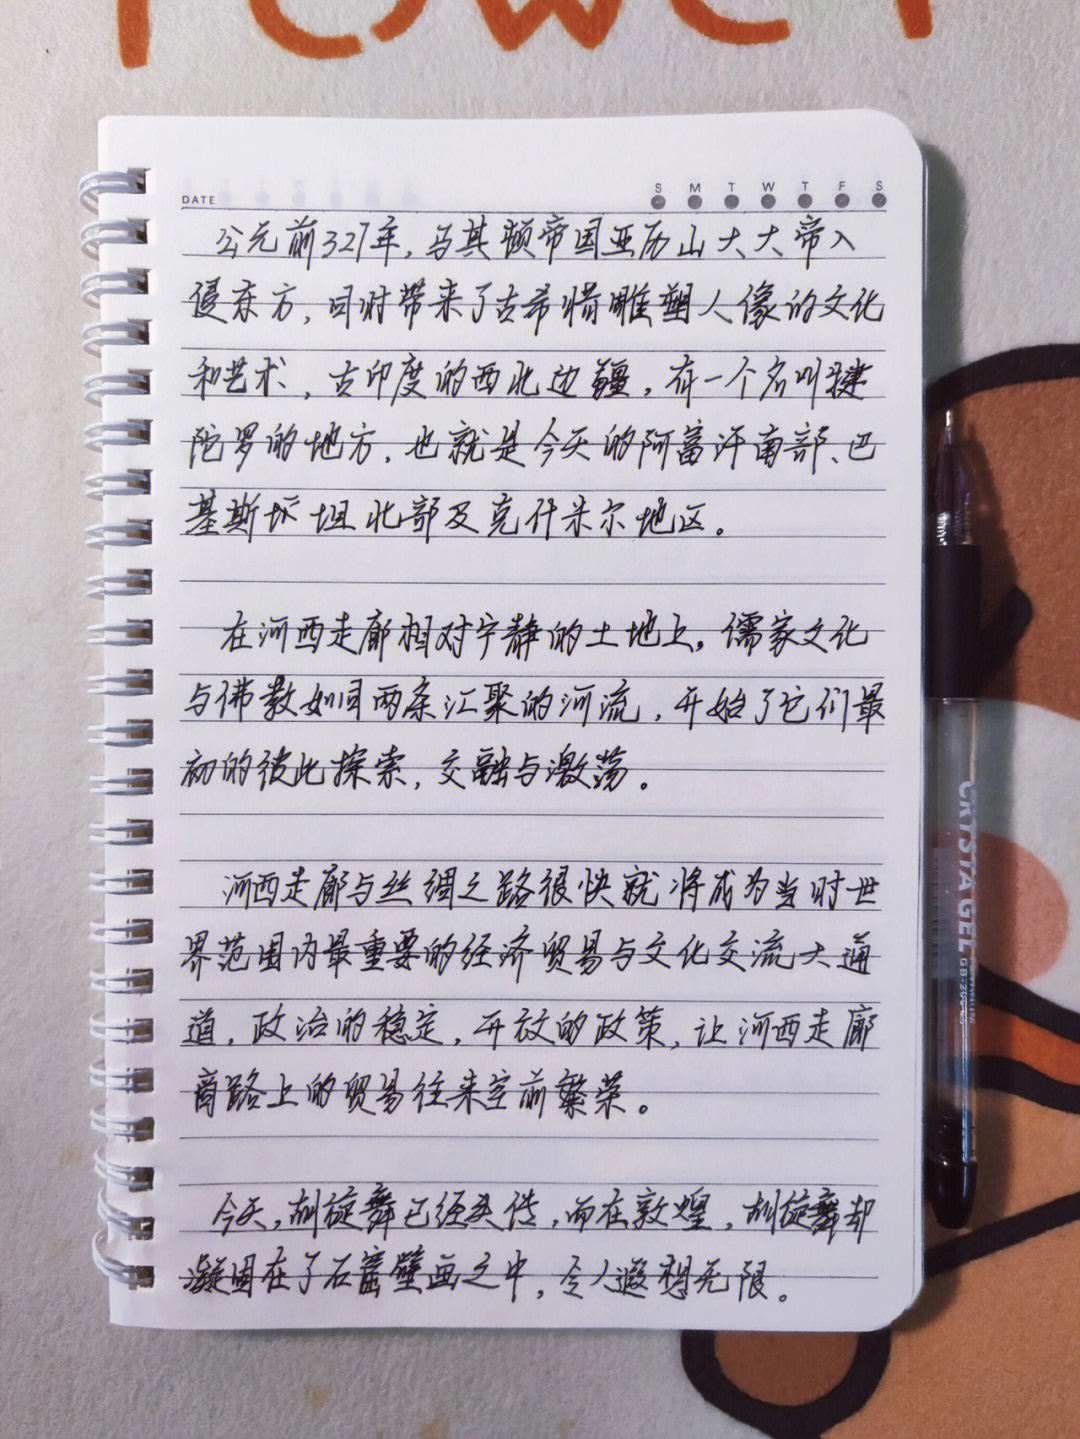 DATE
S M T W T F S
公元前327年，马其顿帝国亚历山大大帝入
侵东方，同时带来了古希惜雕塑人像的文化
和艺术，古印度的西北边疆，有一个名叫犍
陀罗的地方，也就是今天的阿富汗南部、巴
基斯坦北部及克什米尔地区。
在河西走廊相对宁静的土地上，儒家文化
与佛教如同两条汇聚的河流，开始了它们最
初的彼此探索，交融与激荡。
河西走廊与丝绸之路很快就将成为当时世
界范围内最重要的经济贸易与文化交流大通
道，政治的稳定，开放的政策，让河西走廊
商路上的贸易往来空前繁荣。
今天，胡旋舞已经失传，而在敦煌，胡旋舞却
凝固在了石窟壁画之中，令人遐想无限。
CRYSTA GEL